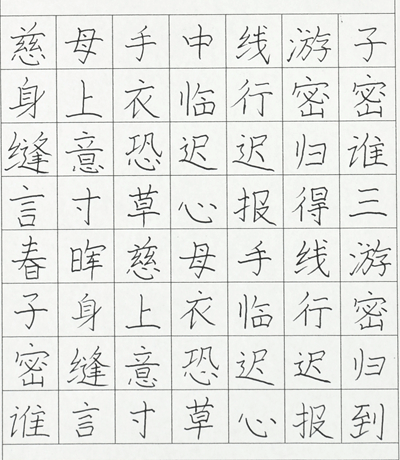 慈母手中线游子
身上衣临行密密
缝意恐迟迟归谁
言寸草心报得三
春晖慈母手线游
子身上衣临行密
密缝意恐迟迟归
谁言寸草心报到